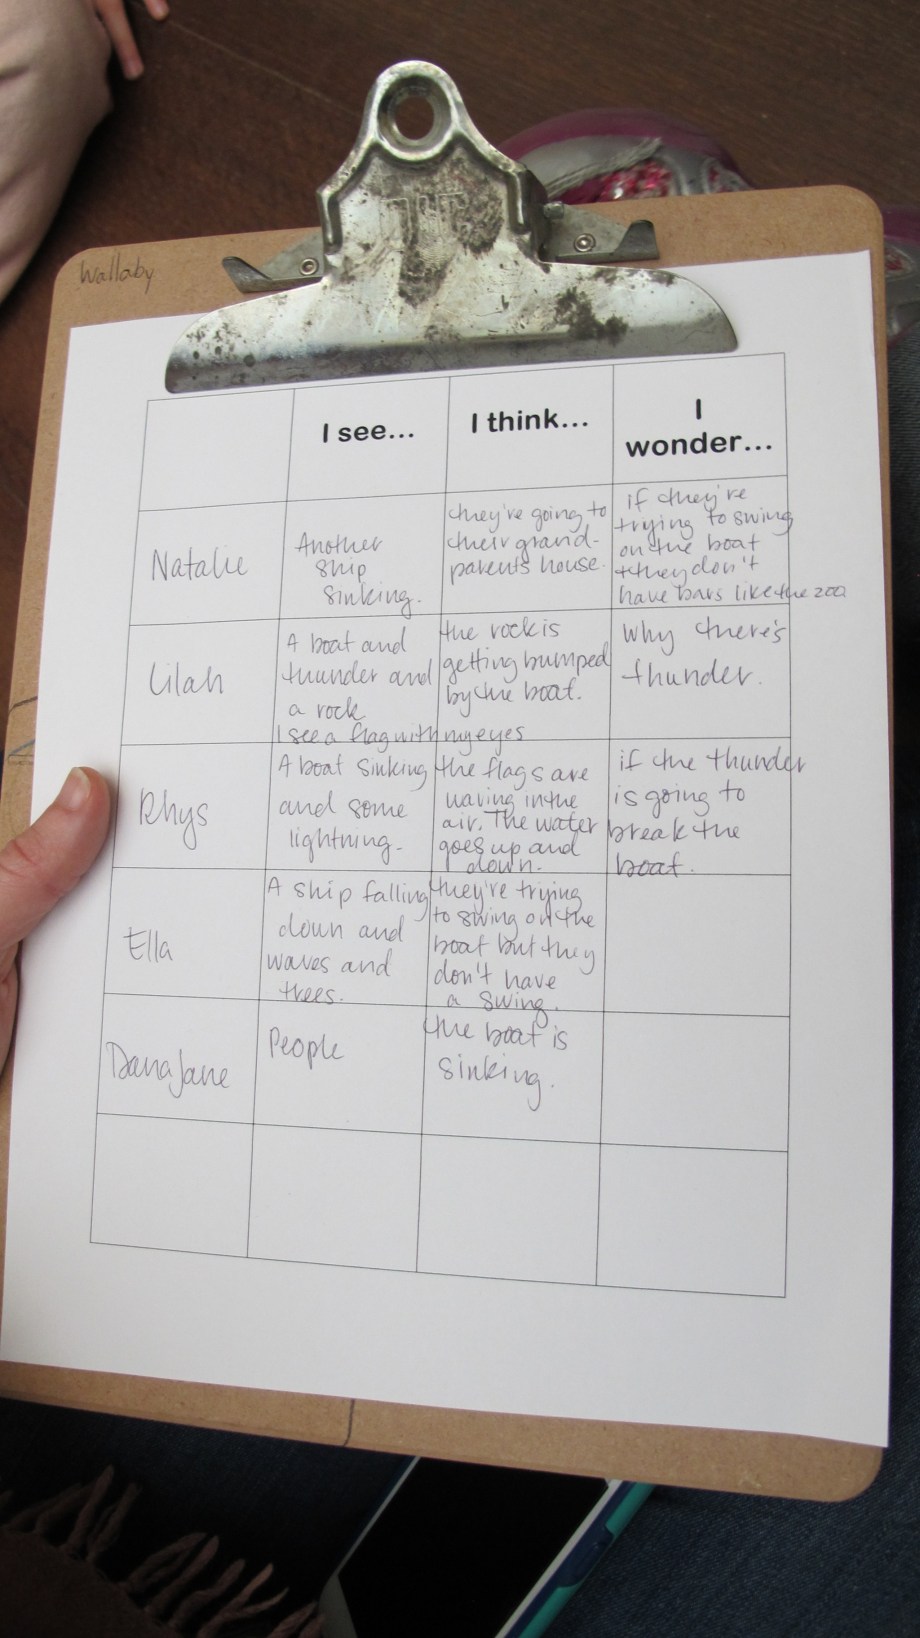 Wallaby
I see...
I think...
I
wonder...
Natalie
Another
ship
sinking.
they're going to
their grand-
parents house.
if they're
trying to swing
on the boat
+ they don't
have bars like the zoo
Lilah
A boat and
thunder and
a rock
I see a flag with my eyes
the rock is
getting bumped
by the boat.
why there's
thunder.
Rhys
A boat sinking
and some
lightning.
the flags are
waving in the
air. The water
goes up and
down.
if the thunder
is going to
break the
boat.
Ella
A ship falling
down and
waves and
trees.
they're trying
to swing on the
boat but they
don't have
a swing.
DanaJane
People
the boat is
sinking.